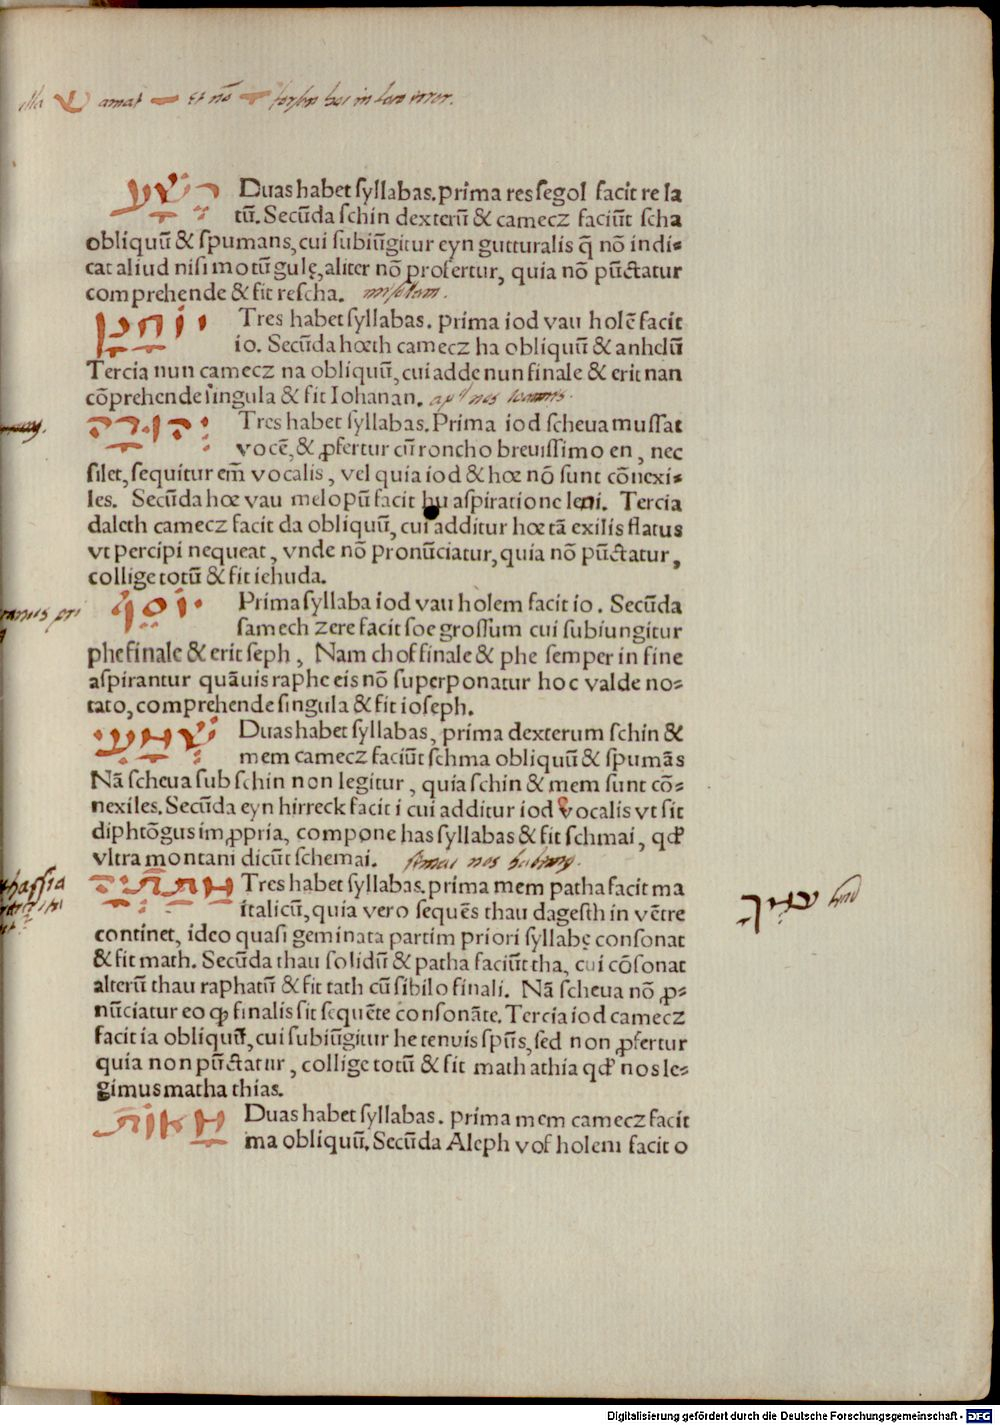 amat et nõ
רֶשָׁע Duas habet syllabas. prima res segol facit re la
tũ. Secũda schin dexterũ & camecz faciũt scha
obliquũ & spumans, cui subiũgitur eyn gutturalis q̃ nõ indi⸗
cat aliud nisi motũ gulę, aliter nõ profertur, quia nõ pũctatur
comprehende & fit rescha.
יוֹחָנָן Tres habet syllabas. prima iod vau holẽ facit
io. Secũda hœth camecz ha obliquũ & anhelũ
Tercia nun camecz na obliquũ, cui adde nun finale & erit nan
cõprehende singula & fit Iohanan.
יְהוּדָה Tres habet syllabas. Prima iod scheua mussat
vocẽ, & ꝓfertur cũ roncho breuissimo en, nec
silet, sequitur em̃ vocalis, vel quia iod & hœ nõ sunt cõnexi⸗
les. Secũda hœ vau melopũ facit hu aspiratione leni. Tercia
daleth camecz facit da obliquũ, cui additur hœ tã exilis flatus
vt percipi nequeat, vnde nõ pronũciatur, quia nõ pũctatur,
collige totũ & fit iehuda.
יוֹסֵף Prima syllaba iod vau holem facit io. Secũda
samech zere facit soe grossum cui subiungitur
phe finale & erit seph, Nam chof finale & phe semper in fine
aspirantur quãuis raphe eis nõ superponatur hoc valde no⸗
tato, comprehende singula & fit ioseph.
שְׁמָעִי Duas habet syllabas, prima dexterum schin &
mem camecz faciũt schma obliquũ & spumãs
Nã scheua sub schin non legitur, quia schin & mem sunt cõ⸗
nexiles. Secũda eyn hirreck facit i cui additur iod vocalis vt sit
diphtõgus imꝓpria, compone has syllabas & fit schmai, qđ
vltra montani dicũt schemai.
מַתַּתְיָה Tres habet syllabas. prima mem patha facit ma
italicũ, quia vero sequẽs thau dagesth in vẽtre
continet, ideo quasi geminata partim priori syllabę consonat
& fit math. Secũda thau solidũ & patha faciũt tha, cui cõsonat
alterũ thau raphatũ & fit tath cũ sibilo finali. Nã scheua nõ ꝓ⸗
nũciatur eo ꝙ finalis sit sequẽte consonãte. Tercia iod camecz
facit ia obliquũ, cui subiũgitur he tenuis spũs, sed non ꝓfertur
quia non pũctatur, collige totũ & fit mathathia qđ nos le⸗
gimus matha thias.
מָאוֹת Duas habet syllabas. prima mem camecz facit
ma obliquũ. Secũda Aleph vof holem facit o
Digitalisierung gefördert durch die Deutsche Forschungsgemeinschaft - DFG